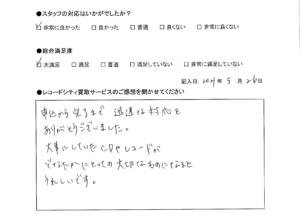 ●スタッフの対応はいかがでしたか?
☑非常に良かった □良かった □普通 □良くない □非常に良くない
●総合満足度
☑大満足 □満足 □普通 □満足していない □非常に満足していない
記入日: 2021年 5月 26日
●レコードシティ買取サービスのご感想を聞かせてください
申込から完了まで 迅速な対応を
ありがとうございました。
大事にしていたCDやレコードが
どなたかにとっての大切なものになると
うれしいです。